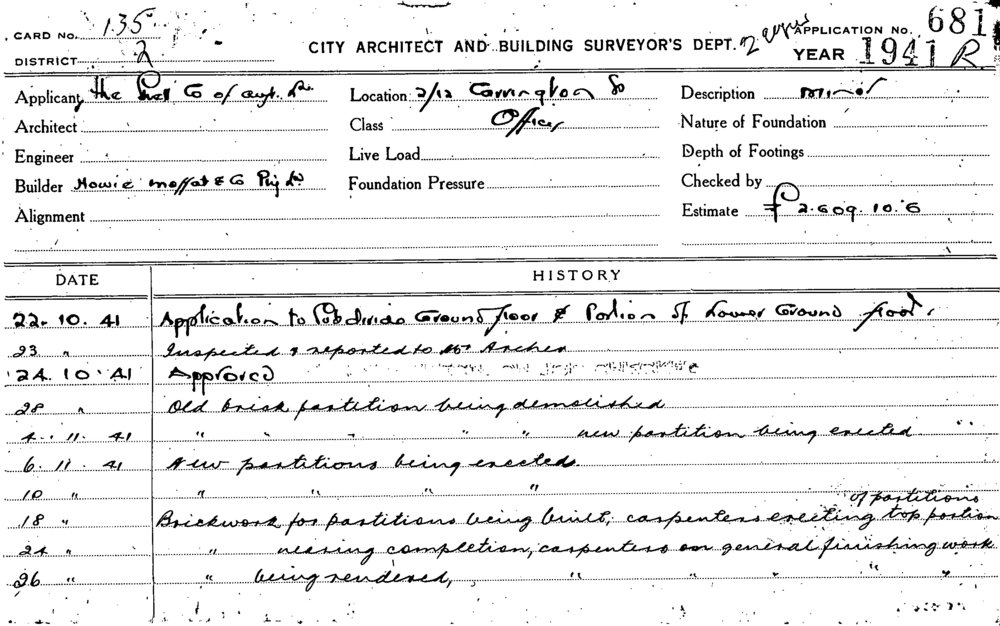 CARD No. 135
DISTRICT 2
CITY ARCHITECT AND BUILDING SURVEYOR'S DEPT.
APPLICATION No. 681
YEAR 1941 R.
Applicant the Co of
Location 2/12 Carrington
Description minor
Architect
Class Offices
Nature of Foundation
Engineer
Live Load
Depth of Footings
Builder Howie Moffat & Co Pty Ld.
Foundation Pressure
Checked by
Alignment
Estimate £ 2.609.10.6
DATE HISTORY
22.10.41 Application to Subdivide Ground floor & Portion of Lower Ground floor.
23 " Inspected & reported to Mr Archer
24.10.41 Approved
28 " Old brick partition being demolished
4.11.41 " " " " " new partition being erected
6.11.41 New partitions being erected.
10 " " " " "
of partitions
18 " Brickwork for partitions being built, carpenters erecting top portion
24 " " nearing completion, carpenters on general finishing work
26 " " being rendered, " " " "